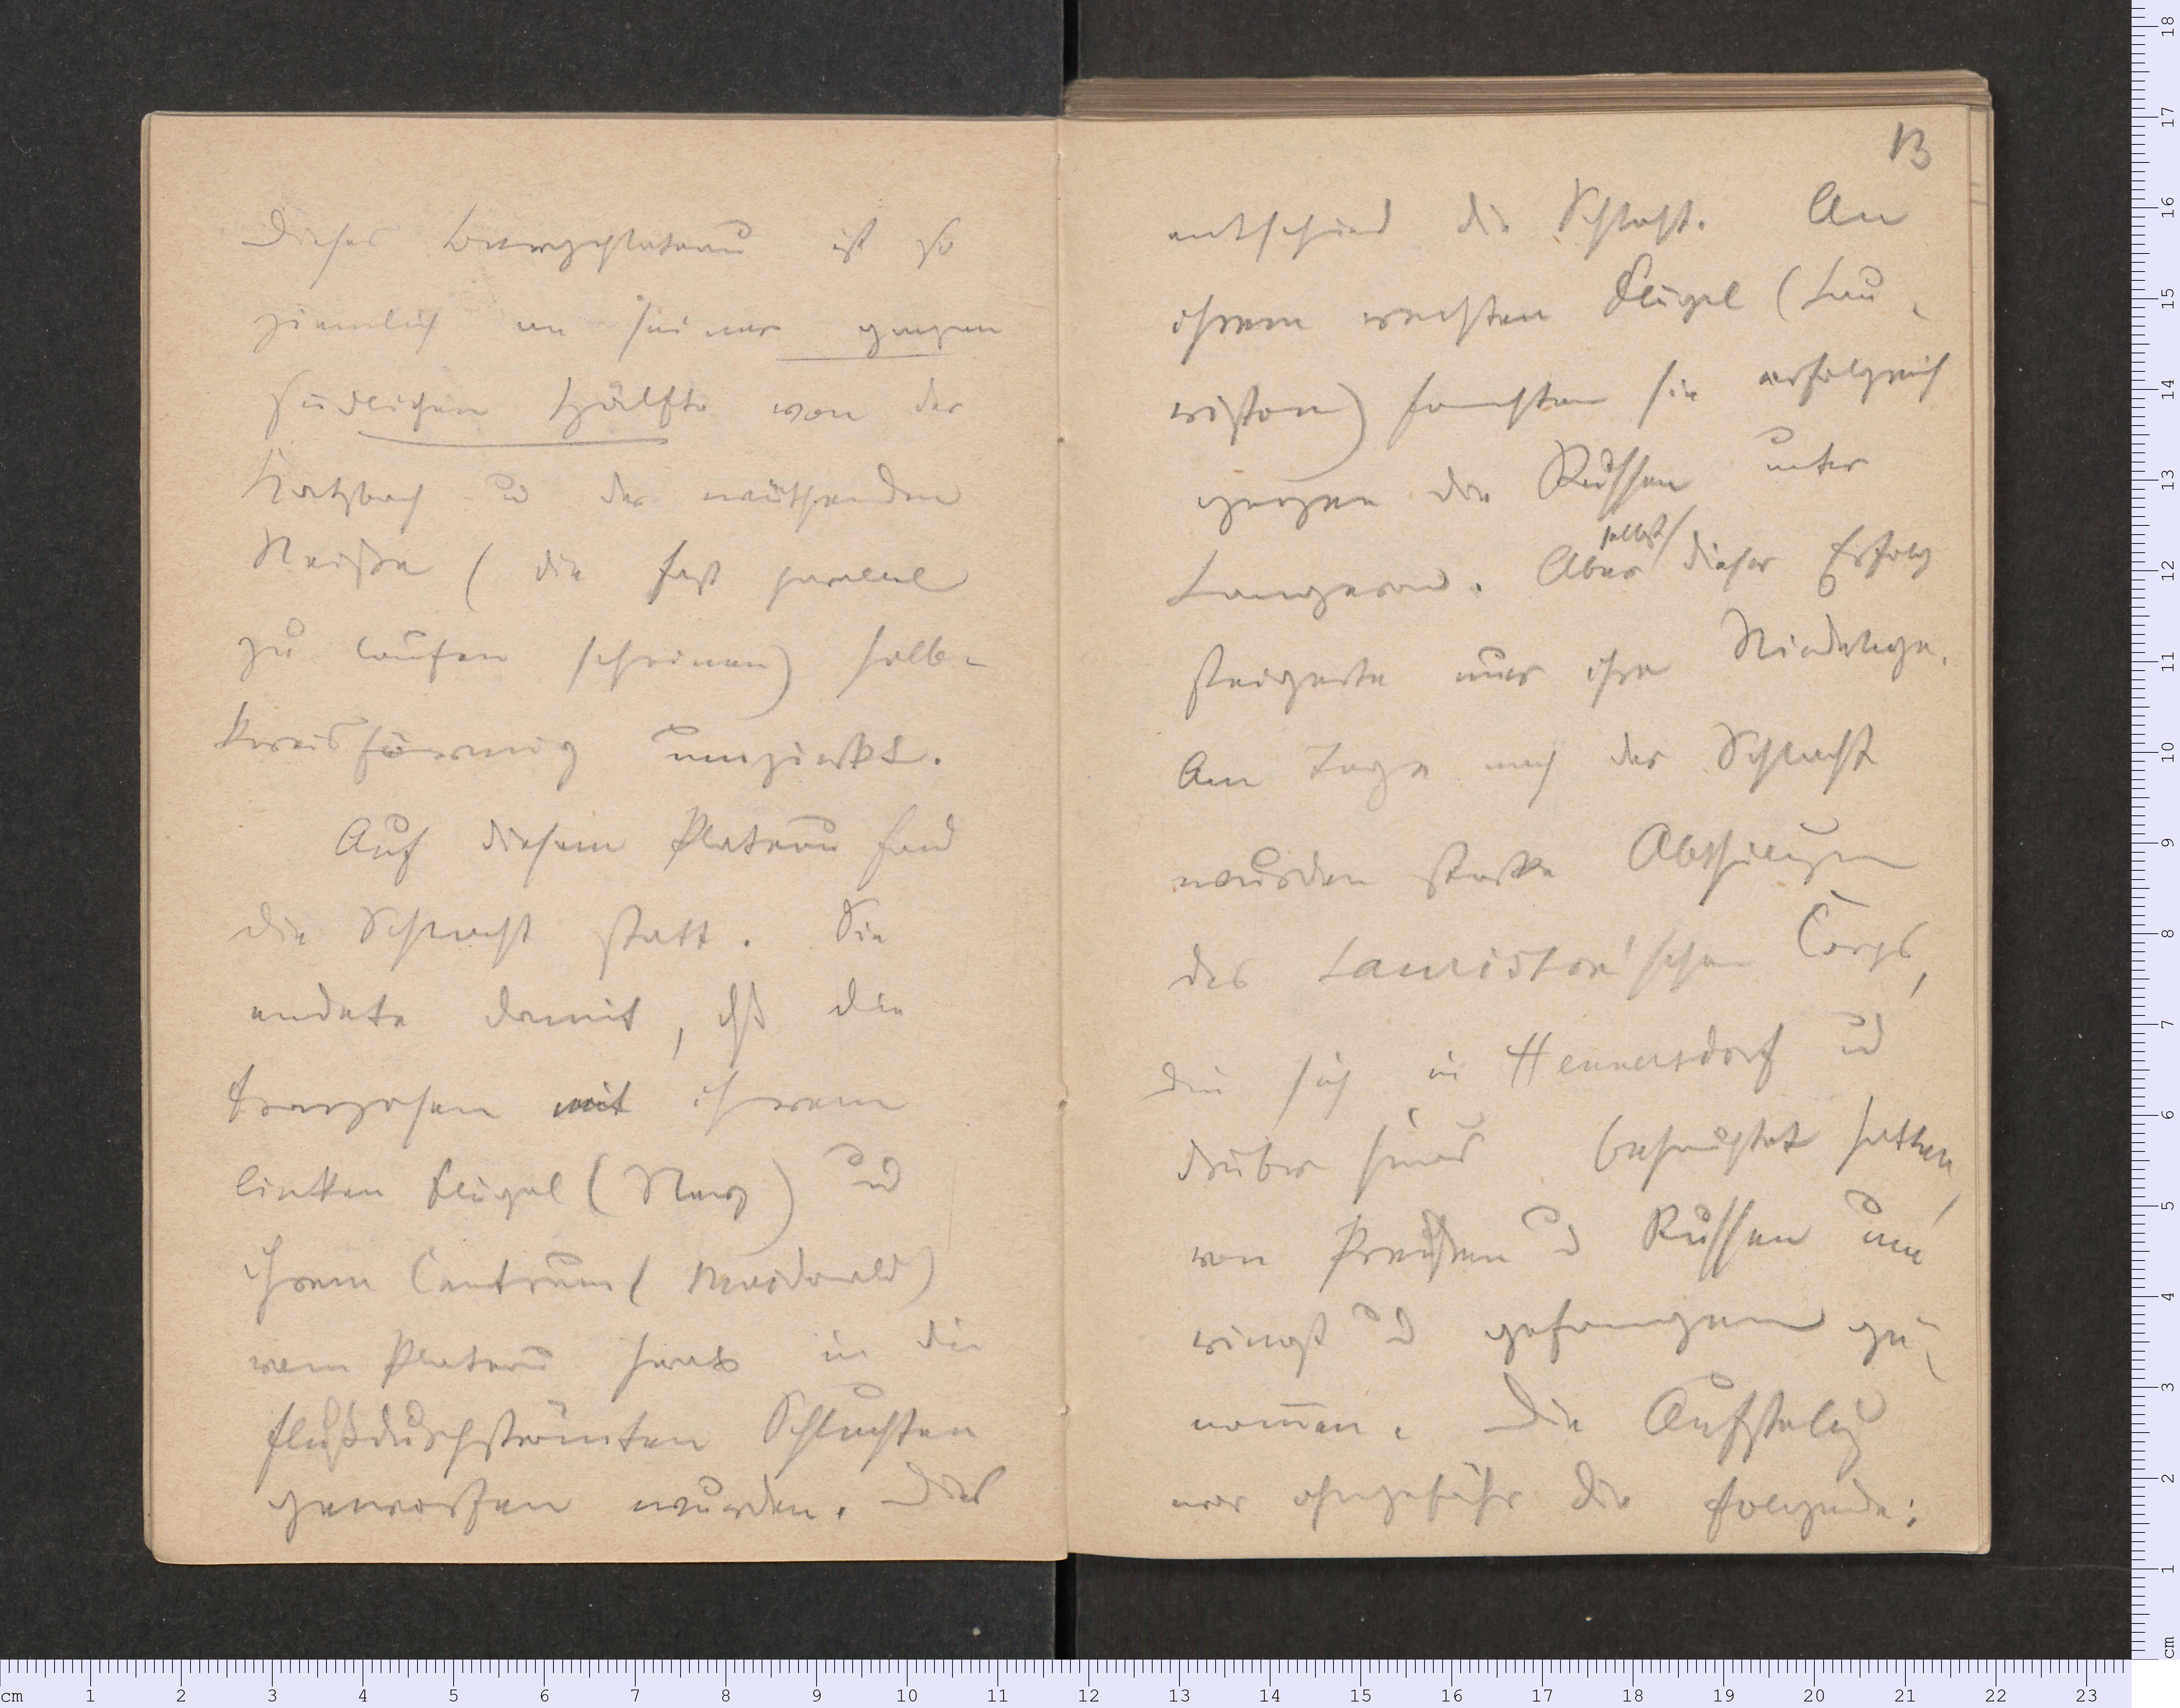 Dieses Bergplateau ist so
ziemlich an seiner ganzen
südlichen Hälfte von der
Katzbach u der wüthenden
Neiße (die fast parallel
zu laufen scheinen) halb-
kreisförmig umzirkt.
Auf diesem Plateau fand
die Schlacht statt. Sie
endete damit, dß die
Franzosen mit ihrem
linken Flügel (Ney) ud
ihrem Centrum (Macdonald)
vom Plateau herab in die
flußdurchströmten Schluchten
geworfen wurden. Dies
13
entschied die Schlacht. An
ihrem rechten Flügel (Lau-
riston) fochten sie erfolgreich
gegen die Russen unter
Langeron. Aber selbst dieser Erfolg
steigerte nur ihre Niederlage.
Am Tage nach der Schlacht
wurden starke Abtheilungen
des Lauriston'schen Corps,
die sich in Hennersdorf ud
drüber hinaus behauptet hatten,
von Preußen u Russen um
ringt ud gefangen ge-
nommen. Die Aufstellung
war ohngefähr die folgende: